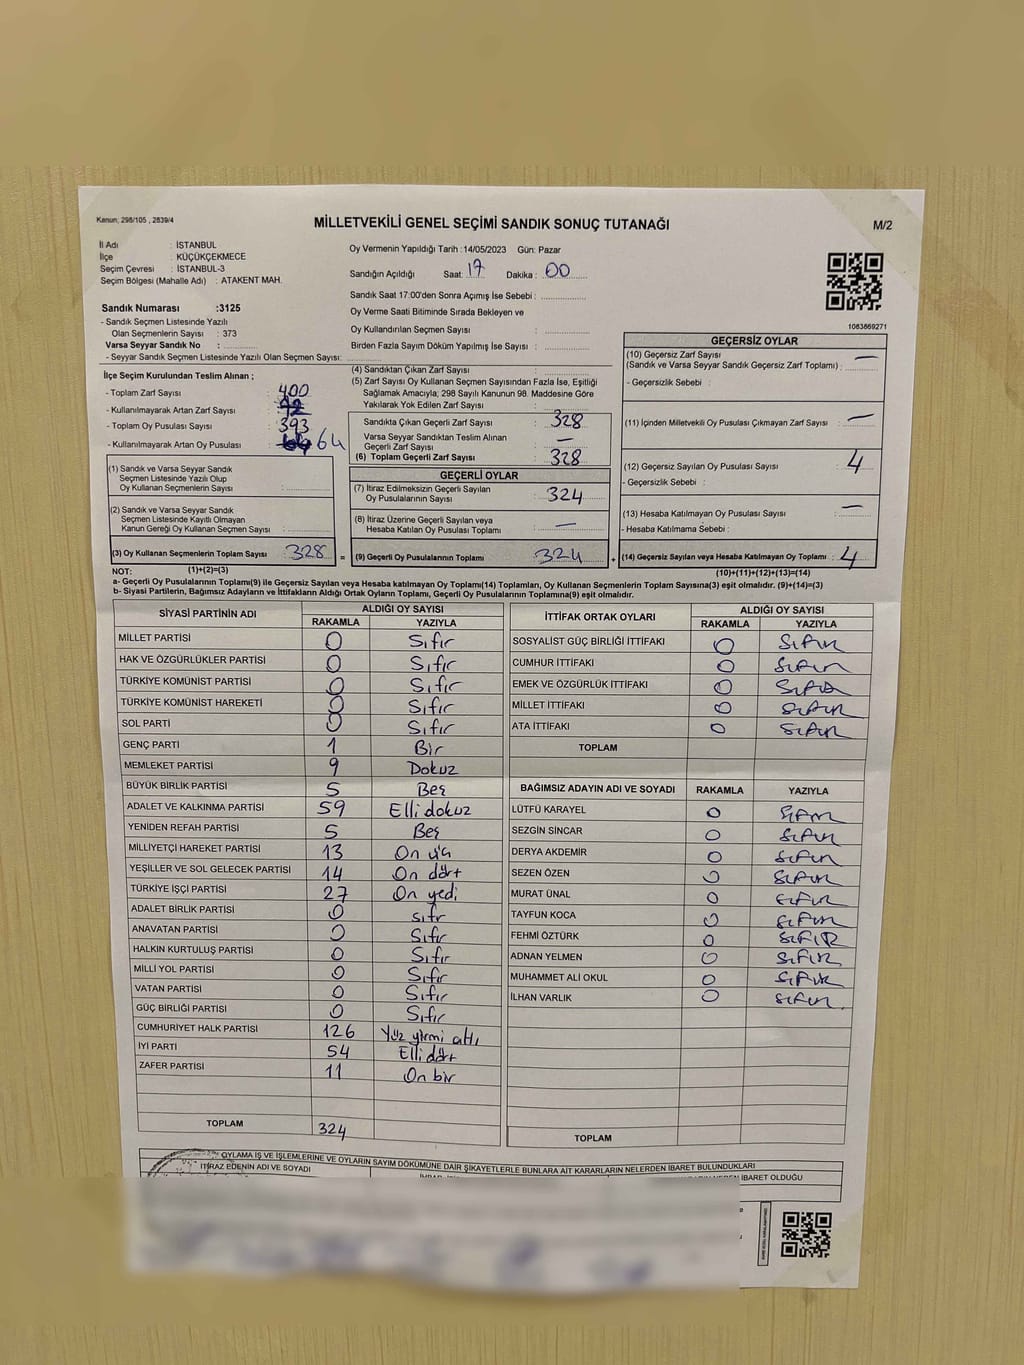 Kanun; 298/105 , 2839/4
MİLLETVEKİLİ GENEL SEÇİMİ SANDIK SONUÇ TUTANAĞI
M/2
İl Adı : İSTANBUL
İlçe : KÜÇÜKÇEKMECE
Seçim Çevresi : İSTANBUL-3
Seçim Bölgesi (Mahalle Adı) : ATAKENT MAH.
Oy Vermenin Yapıldığı Tarih :14/05/2023 Gün: Pazar
Sandığın Açıldığı Saat: 17 Dakika : 00
Sandık Saat 17:00'den Sonra Açımış İse Sebebi :
Oy Verme Saati Bitiminde Sırada Bekleyen ve
Oy Kullandırılan Seçmen Sayısı :
Birden Fazla Sayım Döküm Yapılmış İse Sayısı :
1083869271
Sandık Numarası :3125
- Sandık Seçmen Listesinde Yazılı
Olan Seçmenlerin Sayısı : 373
Varsa Seyyar Sandık No :
- Seyyar Sandık Seçmen Listesinde Yazılı Olan Seçmen Sayısı:
İlçe Seçim Kurulundan Teslim Alınan ;
- Toplam Zarf Sayısı : 400
- Kullanılmayarak Artan Zarf Sayısı :
- Toplam Oy Pusulası Sayısı : 393
- Kullanılmayarak Artan Oy Pusulası : 64
(1) Sandık ve Varsa Seyyar Sandık
Seçmen Listesinde Yazılı Olup
Oy Kullanan Seçmenlerin Sayısı :
(2) Sandık ve Varsa Seyyar Sandık
Seçmen Listesinde Kayıtlı Olmayan
Kanun Gereği Oy Kullanan Seçmen Sayısı :
(3) Oy Kullanan Seçmenlerin Toplam Sayısı : 328 =
(1)+(2)=(3)
(4) Sandıktan Çıkan Zarf Sayısı :
(5) Zarf Sayısı Oy Kullanan Seçmen Sayısından Fazla İse, Eşitliği
Sağlamak Amacıyla; 298 Sayılı Kanunun 98. Maddesine Göre
Yakılarak Yok Edilen Zarf Sayısı :
Sandıkta Çıkan Geçerli Zarf Sayısı : 328
Varsa Seyyar Sandıktan Teslim Alınan
Geçerli Zarf Sayısı : —
(6) Toplam Geçerli Zarf Sayısı : 328
GEÇERLİ OYLAR
(7) İtiraz Edilmeksizin Geçerli Sayılan
Oy Pusulalarının Sayısı : 324
(8) İtiraz Üzerine Geçerli Sayılan veya
Hesaba Katılan Oy Pusulası Toplamı : —
(9) Geçerli Oy Pusulalarının Toplamı : 324 +
GEÇERSİZ OYLAR
(10) Geçersiz Zarf Sayısı —
(Sandık ve Varsa Seyyar Sandık Geçersiz Zarf Toplamı) :
- Geçersizlik Sebebi :
(11) İçinden Milletvekili Oy Pusulası Çıkmayan Zarf Sayısı : —
(12) Geçersiz Sayılan Oy Pusulası Sayısı : 4
- Geçersizlik Sebebi :
(13) Hesaba Katılmayan Oy Pusulası Sayısı : —
- Hesaba Katılmama Sebebi :
(14) Geçersiz Sayılan veya Hesaba Katılmayan Oy Toplamı : 4
(10)+(11)+(12)+(13)=(14)
NOT:
a- Geçerli Oy Pusulalarının Toplamı(9) ile Geçersiz Sayılan veya Hesaba katılmayan Oy Toplamı(14) Toplamları, Oy Kullanan Seçmenlerin Toplam Sayısına(3) eşit olmalıdır. (9)+(14)=(3)
b- Siyasi Partilerin, Bağımsız Adayların ve İttifakların Aldığı Ortak Oyların Toplamı, Geçerli Oy Pusulalarının Toplamına(9) eşit olmalıdır.
SİYASİ PARTİNİN ADI ALDIĞI OY SAYISI
RAKAMLA YAZIYLA
MİLLET PARTİSİ 0 Sıfır
HAK VE ÖZGÜRLÜKLER PARTİSİ 0 Sıfır
TÜRKİYE KOMÜNİST PARTİSİ 0 Sıfır
TÜRKİYE KOMÜNİST HAREKETİ 0 Sıfır
SOL PARTİ 0 Sıfır
GENÇ PARTİ 1 Bir
MEMLEKET PARTİSİ 9 Dokuz
BÜYÜK BİRLİK PARTİSİ 5 Beş
ADALET VE KALKINMA PARTİSİ 59 Elli dokuz
YENİDEN REFAH PARTİSİ 5 Beş
MİLLİYETÇİ HAREKET PARTİSİ 13 On üç
YEŞİLLER VE SOL GELECEK PARTİSİ 14 On dört
TÜRKİYE İŞÇİ PARTİSİ 27 On yedi
ADALET BİRLİK PARTİSİ 0 sıfr
ANAVATAN PARTİSİ 0 Sıfır
HALKIN KURTULUŞ PARTİSİ 0 Sıfır
MİLLİ YOL PARTİSİ 0 Sıfır
VATAN PARTİSİ 0 Sıfır
GÜÇ BİRLİĞİ PARTİSİ 0 Sıfır
CUMHURİYET HALK PARTİSİ 126 Yüz yirmi altı
İYİ PARTİ 54 Elli dört
ZAFER PARTİSİ 11 On bir
TOPLAM 324
İTTİFAK ORTAK OYLARI ALDIĞI OY SAYISI
RAKAMLA YAZIYLA
SOSYALİST GÜÇ BİRLİĞİ İTTİFAKI 0 SIFIR
CUMHUR İTTİFAKI 0 SIFIR
EMEK VE ÖZGÜRLÜK İTTİFAKI 0 SIFIR
MİLLET İTTİFAKI 0 SIFIR
ATA İTTİFAKI 0 SIFIR
TOPLAM
BAĞIMSIZ ADAYIN ADI VE SOYADI RAKAMLA YAZIYLA
LÜTFÜ KARAYEL 0 SIFIR
SEZGİN SİNCAR 0 SIFIR
DERYA AKDEMİR 0 SIFIR
SEZEN ÖZEN 0 SIFIR
MURAT ÜNAL 0 SIFIR
TAYFUN KOCA 0 SIFIR
FEHMİ ÖZTÜRK 0 SIFIR
ADNAN YELMEN 0 SIFIR
MUHAMMET ALİ OKUL 0 SIFIR
İLHAN VARLIK 0 SIFIR
TOPLAM
OYLAMA İŞ VE İŞLEMLERİNE VE OYLARIN SAYIM DÖKÜMÜNE DAİR ŞİKAYETLERLE BUNLARA AİT KARARLARIN NELERDEN İBARET BULUNDUKLARI
İTİRAZ EDENİN ADI VE SOYADI
İBARET OLDUĞU